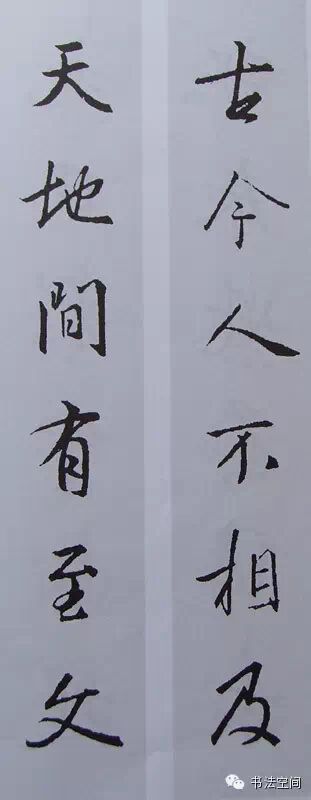 古今人不相及
天地間有至文
书法空间